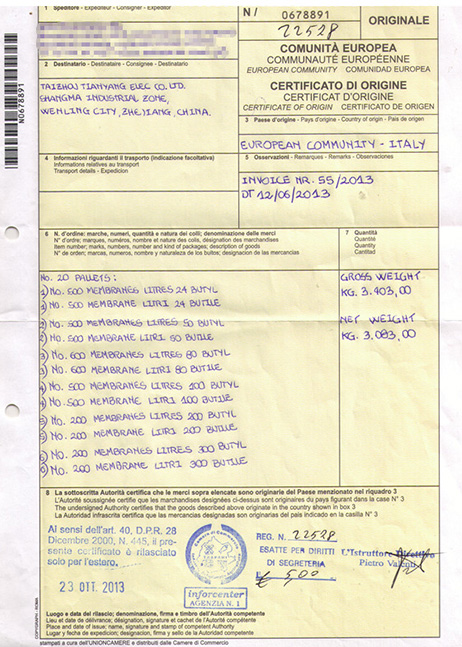 1 Speditore - Expéditeur - Consigner - Expedidor
N / 0678891
22528
ORIGINALE
COMUNITÀ EUROPEA
COMMUNAUTÉ EUROPÉENNE
EUROPEAN COMMUNITY - COMUNIDAD EUROPEA
CERTIFICATO DI ORIGINE
CERTIFICAT D'ORIGINE
CERTIFICATE OF ORIGIN - CERTIFICADO DE ORIGEN
N0678891
2 Destinatario - Destinataire - Consignee - Destinatario
TAIZHOU TIANYANG ELEC CO. LTD.
SHANGMA INDUSTRIAL ZONE,
WENLING CITY, ZHEJIANG, CHINA.
3 Paese d'origine - Pays d'origine - Country of origin - País de origen
EUROPEAN COMMUNITY - ITALY
4 Informazioni riguardanti il trasporto (indicazione facoltativa)
Informations relatives au transport
Transport details - Expedicion
5 Osservazioni - Remarques - Remarks - Observaciones
INVOICE NR. 55/2013
DT 12/06/2013
6 N. d'ordine: marche, numeri, quantità e natura dei colli; denominazione delle merci
N° d'ordre; marques, numéros, nombre et nature des colis, désignation des marchandises
Item number; marks, numbers, number and kind of packages; description of goods
N° de orden; marcas, numeros, nombre y naturaleza de los bultos; designacion de las mercancias
7 Quantità
Quantité
Quantity
Cantitad
NO. 20 PALLETS:
1) NO. 500 MEMBRANES LITRES 24 BUTYL
1) NO. 500 MEMBRANE LITRI 24 BUTILE
2) NO. 500 MEMBRANES LITRES 50 BUTYL
2) NO. 500 MEMBRANE LITRI 50 BUTILE
3) NO. 600 MEMBRANES LITRES 80 BUTYL
3) NO. 600 MEMBRANE LITRI 80 BUTILE
4) NO. 500 MEMBRANES LITRES 100 BUTYL
4) NO. 500 MEMBRANE LITRI 100 BUTILE
5) NO. 200 MEMBRANES LITRES 200 BUTYL
5) NO. 200 MEMBRANE LITRI 200 BUTILE
6) NO. 200 MEMBRANES LITRES 300 BUTYL
6) NO. 200 MEMBRANE LITRI 300 BUTILE
GROSS WEIGHT
KG. 3.403,00
NET WEIGHT
KG. 3.083,00
8 La sottoscritta Autorità certifica che le merci sopra elencate sono originarie del Paese menzionato nel riquadro 3
L'Autorité soussignée certifie que les marchandises désignées ci-dessus sont originaires du pays figurant dans la case N° 3
The undersigned Authority certifies that the goods described above originate in the country shown in box 3
La Autoridad infrascrita certifica que las mercancias designadas son originarias del país indicado en la casilla N° 3
Al sensi dell'art. 40, D.P.R. 28
Dicembre 2000, N. 445, il pre
sente certificato è rilasciato
solo per l'estero.
23 OTT. 2013
Camera di Commercio
inforcenter
AGENZIA N. 1
REG. N. 22528
ESATTE PER DIRITTI
DI SEGRETERIA
€ 5,00
L'Istruttore Direttivo
Pietro Valenti
Luogo e data del rilascio; denominazione, firma e timbro dell'Autorità competente
Lieu et date de délivrance; désignation, signature et cachet de l'Autorité compétente
Place and date of issue; name, signature and stamp of competent Authority
Lugar y fecha de expedicion; designacion, firma y sello de la Autoridad competente
COPYGRAPH - ROMA
stampati a cura dell'UNIONCAMERE e distribuiti dalle Camere di Commercio